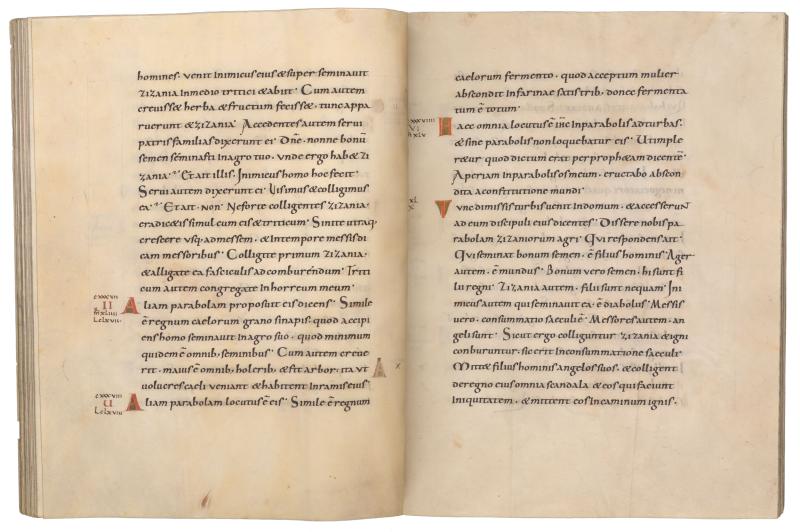 homines· venit inimicus eius & super seminavit
zizania inmedio tritici & abiit· Cum autem
creviss& herba & fructum feciss&· tunc appa
ruerunt & zizania· Accedentes autem servi
patris familias dixerunt ei· Dn̄e· nonne bonū
semen seminasti inagro tuo· unde ergo hab& zi
zania· Et ait illis· Inimicus homo hoc fecit·
Servi autem dixerunt ei· Vis imus & colligimus
ea· Et ait· Non· Ne forte colligentes zizania·
eradic&is simul cum eis & triticum· Sinite utraq;
crescere usq; admessem· & intempore messis di
cam messoribus· Colligite primum zizania·
& alligate ea fasciculis adcomburendum· Triti
cum autem congregate in horreum meum·
cxxxvii
II
Mr xliiii
Lc lxvii·
Aliam parabolam proposuit eis dicens· Simile
ē regnum caelorum grano sinapis· quod accipi
ens homo seminavit inagro suo· quod minimum
quidem ē omnib; seminibus· Cum autem creve
rit· maius ē omnib; holerib; & fit arbor· ita ut
volucres caeli veniant & habitent inramis eius·
cxxxviii
U
Lc lxviii
Aliam parabolam locutus ē eis· Simile ē regnum
caelorum fermento· quod acceptum mulier
abscondit infarinae satis trib; donec fermenta
tum ē totum·
cxxxviiii
VI
Mr xlv
Haec omnia locutus ē ih̄c inparabolis adturbas·
& sine parabolis non loquebatur eis· Ut imple
r&ur quod dictum erat per proph&am dicentē·
Aperiam inparabolis os meum· eructabo abscon
dita aconstitutione mundi·
xl
X
Tunc dimissis turbis venit indomum· & accesserunt
ad eum discipuli eius dicentes· Dissere nobis pa
rabolam zizaniorum agri· Qui respondens ait·
Qui seminat bonum semen· ē filius hominis· Ager
autem· ē mundus· Bonum vero semen· hi sunt fi
lii regni· Zizania autem· filii sunt nequam· Ini
micus autem qui seminavit ea· ē diabolus· Messis
vero· consummatio saeculi ē· Messores autem· an
geli sunt· Sicut ergo colliguntur zizania & igni
conburuntur· sic erit inconsummatione saeculi·
Mitt& filius hominis angelos suos· & colligent
deregno eius omnia scandala & eos qui faciunt
iniquitatem· & mittent eos incaminum ignis·